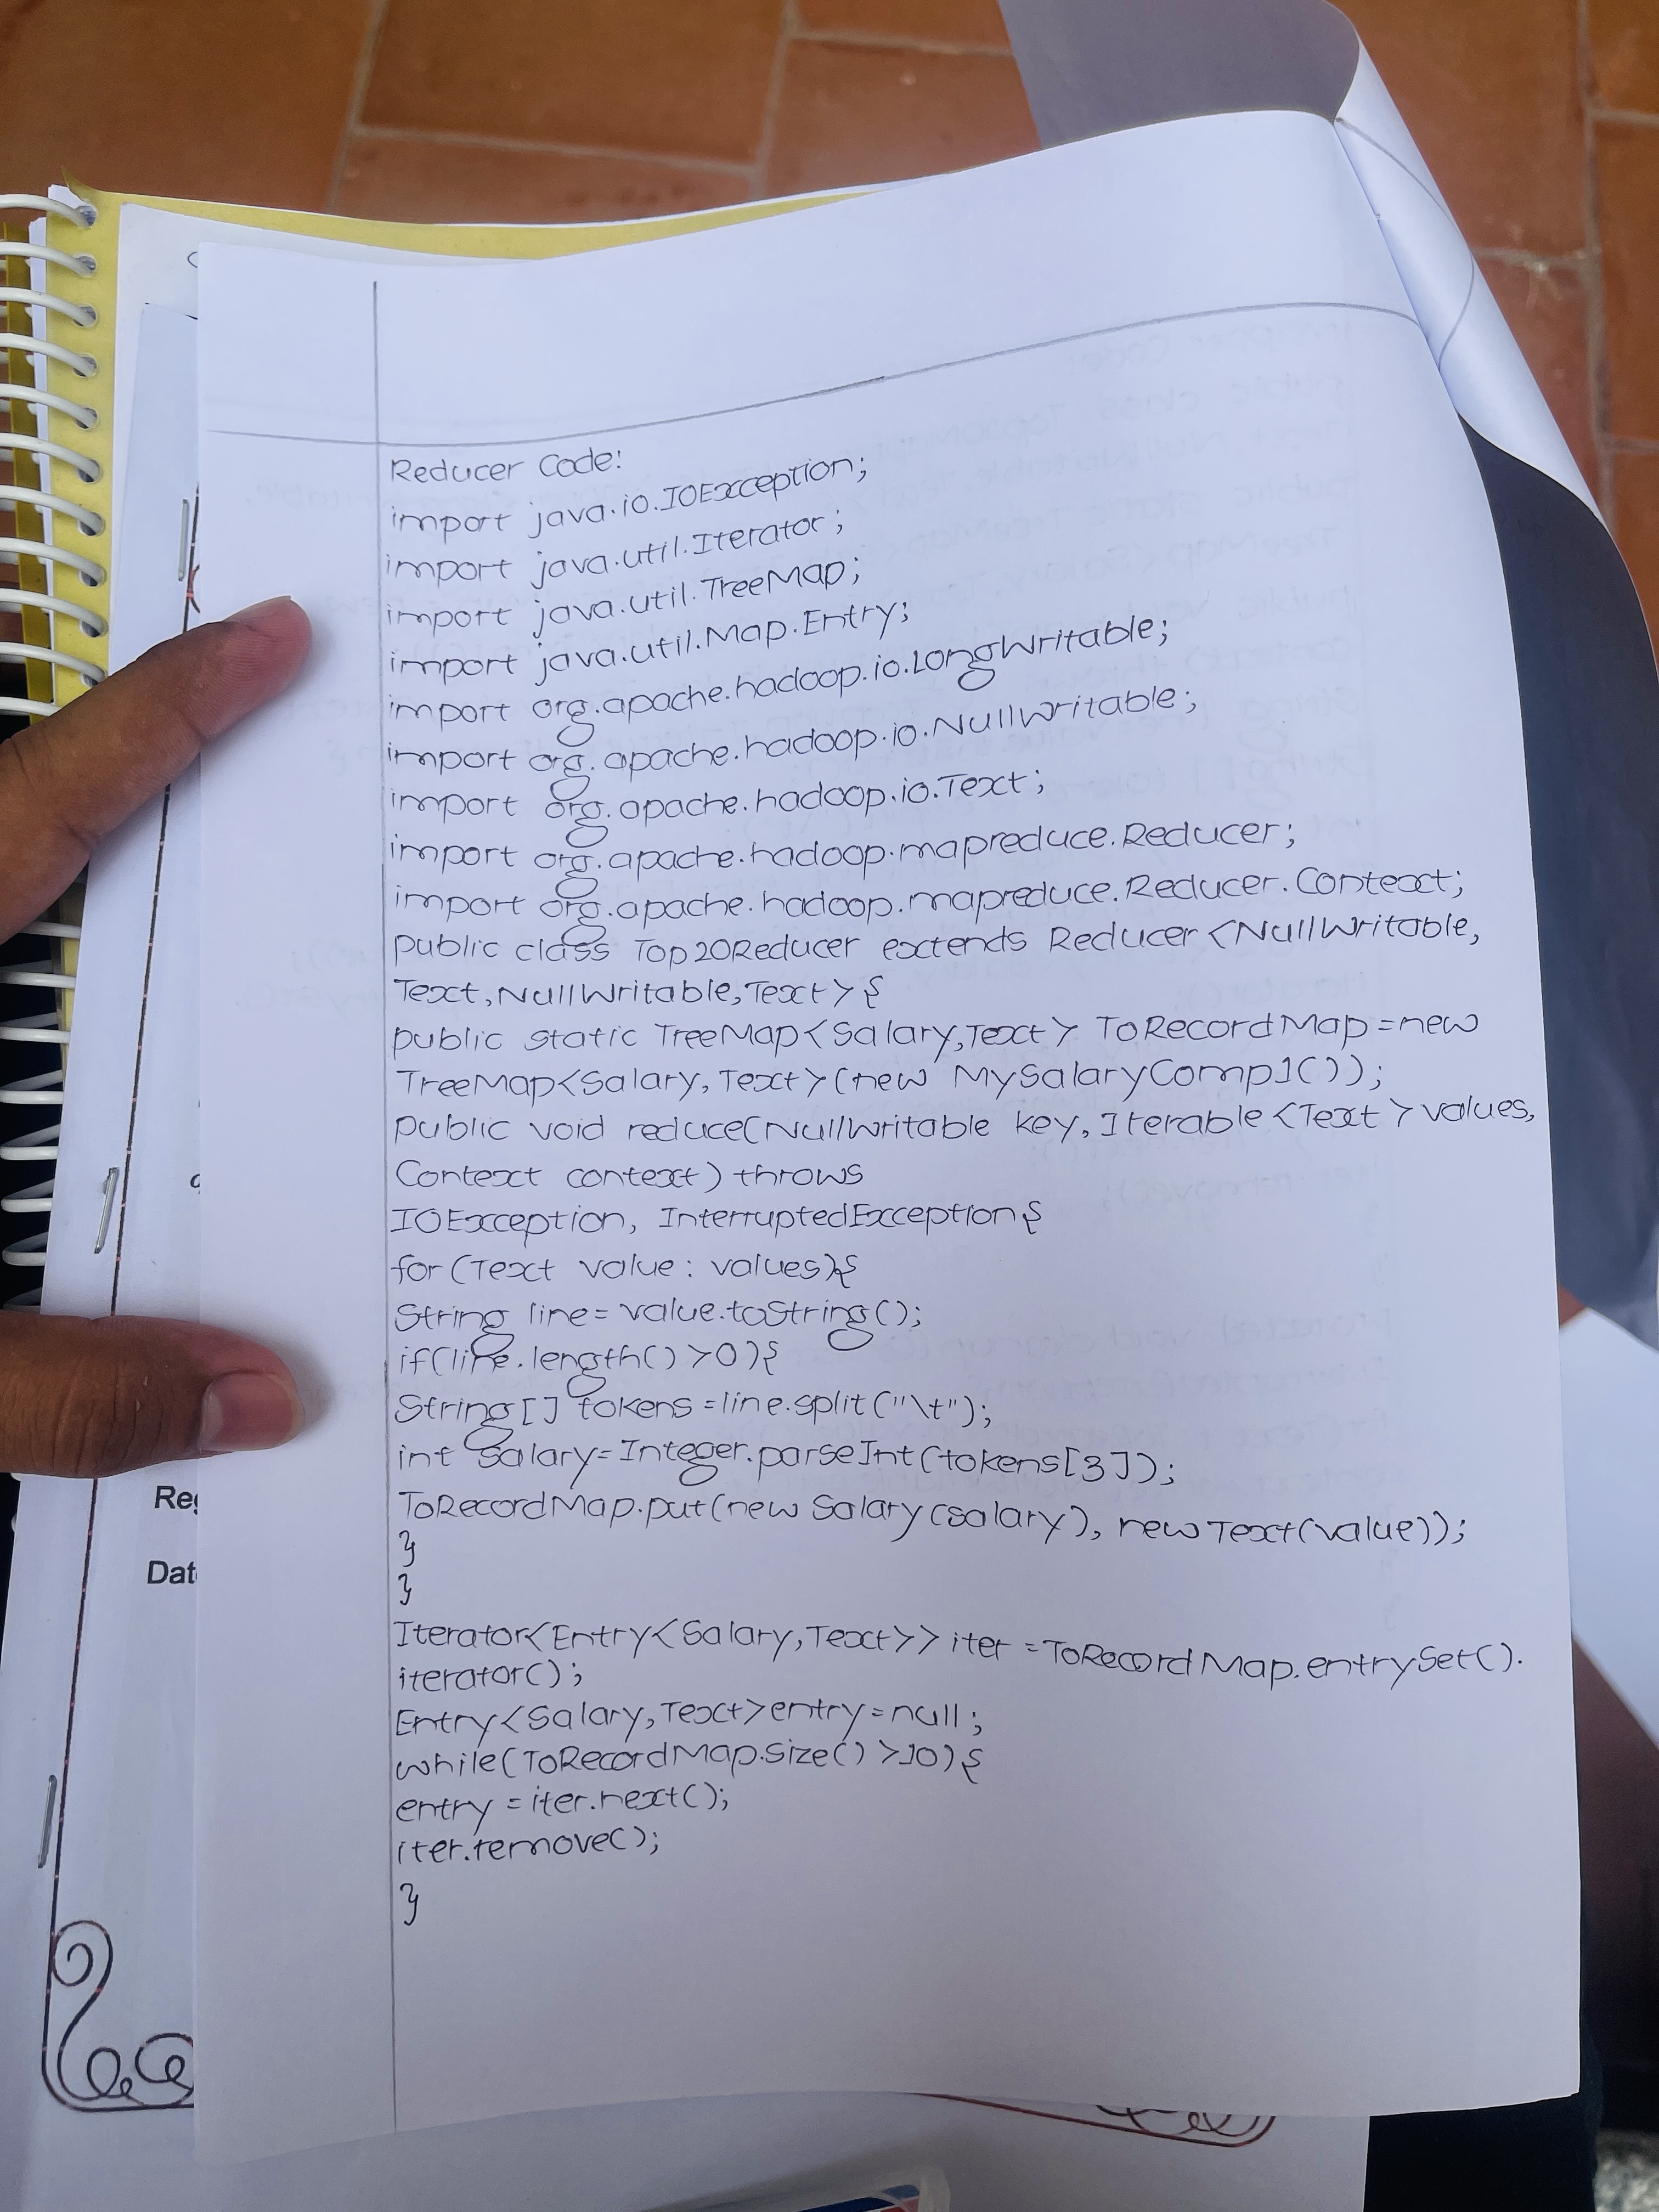 Reducer Code:
import java.io.IOException;
import java.util.Iterator;
import java.util.TreeMap;
import java.util.Map.Entry;
import org.apache.hadoop.io.LongWritable;
import org.apache.hadoop.io.NullWritable;
import org.apache.hadoop.io.Text;
import org.apache.hadoop.mapreduce.Reducer;
import org.apache.hadoop.mapreduce.Reducer.Context;
public class Top20Reducer extends Reducer<NullWritable,
Text,NullWritable,Text>{
public static TreeMap<Salary,Text> ToRecordMap=new
TreeMap<Salary,Text>(new MySalaryComp1());
public void reduce(NullWritable key,Iterable<Text>values,
Context context) throws
IOException, InterruptedException{
for(Text value: values){
String line=value.toString();
if(line.length()>0){
String[] tokens=line.split("\t");
int salary=Integer.parseInt(tokens[3]);
ToRecordMap.put(new Salary(salary), new Text(value));
}
}
Iterator<Entry<Salary,Text>> iter =ToRecordMap.entrySet().
iterator();
Entry<Salary,Text>entry=null;
while(ToRecordMap.size()>10){
entry=iter.next();
iter.remove();
}